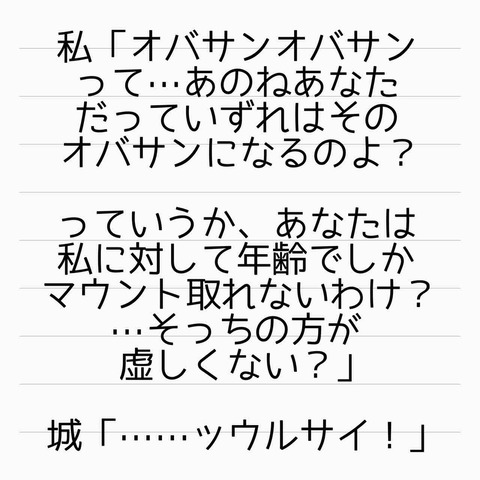 私「オバサンオバサン
って…あのねあなた
だっていずれはその
オバサンになるのよ？
っていうか、あなたは
私に対して年齢でしか
マウント取れないわけ？
…そっちの方が
虚しくない？」
城「……ッウルサイ！」